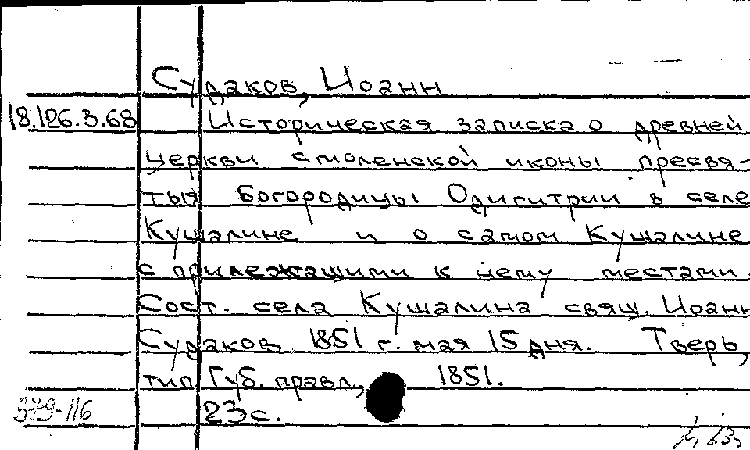 Судаков, Иоанн
18.126.3.68 Историческая записка о древней
церкви смоленской иконы пресвя-
тыя Богородицы Одигитрии в селе
Кушалине и о самом Кушалине
с прилежащими к нему местами.
Сост. села Кушалина свящ. Иоанн
Судаков 1851 г. мая 15 дня. Тверь,
тип. Губ. правл., 1851.
23 с.